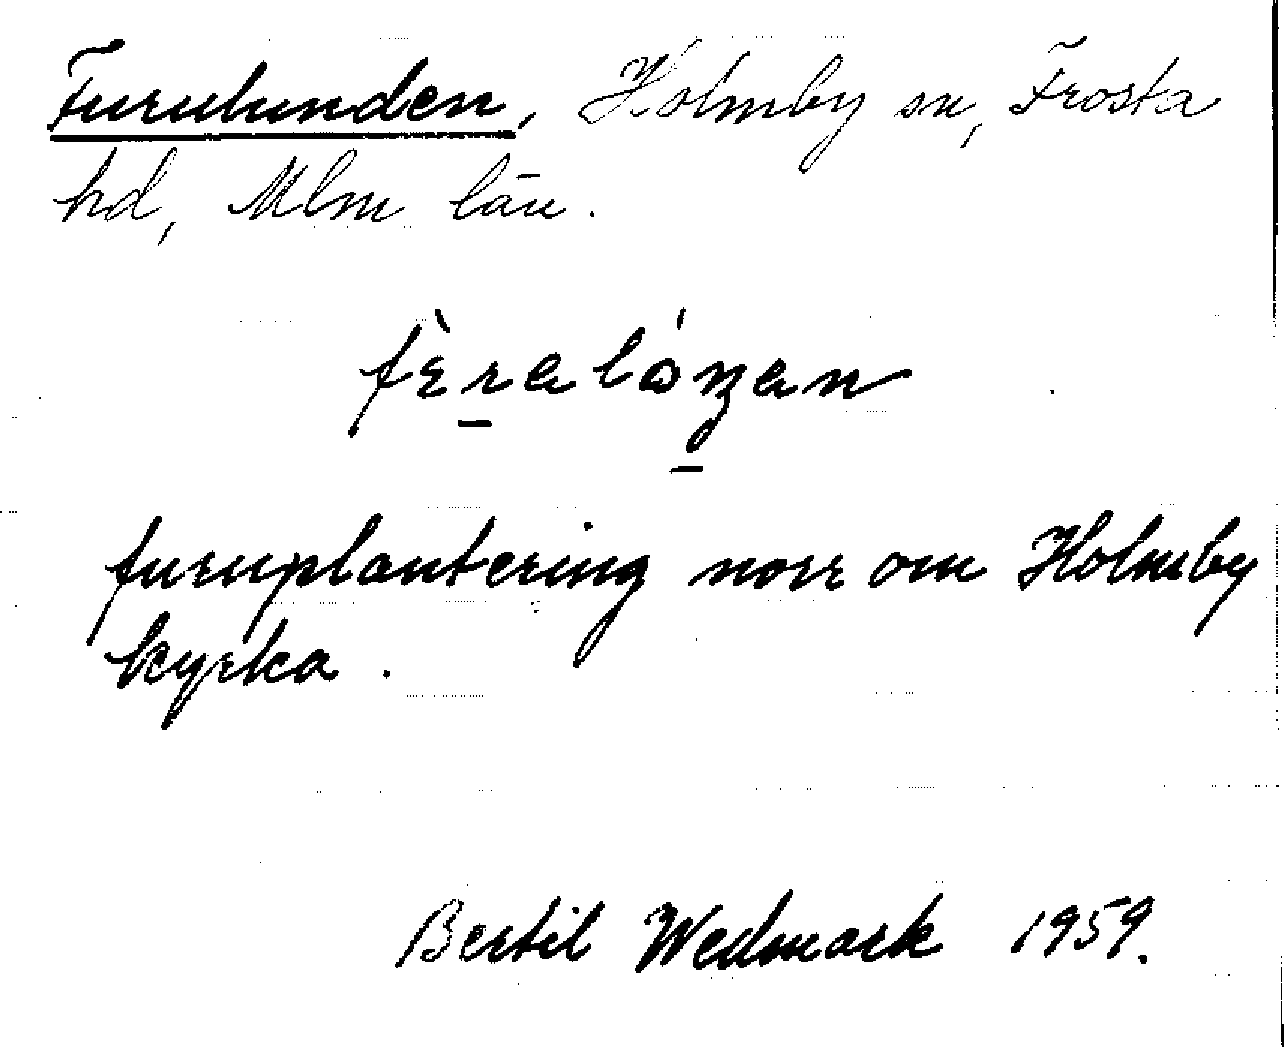 Furulunden, Holmby sn, Frosta
hd, Mlm län.
furuplantering norr om Holmby
kyrka.
Bertil Wedmark 1959.